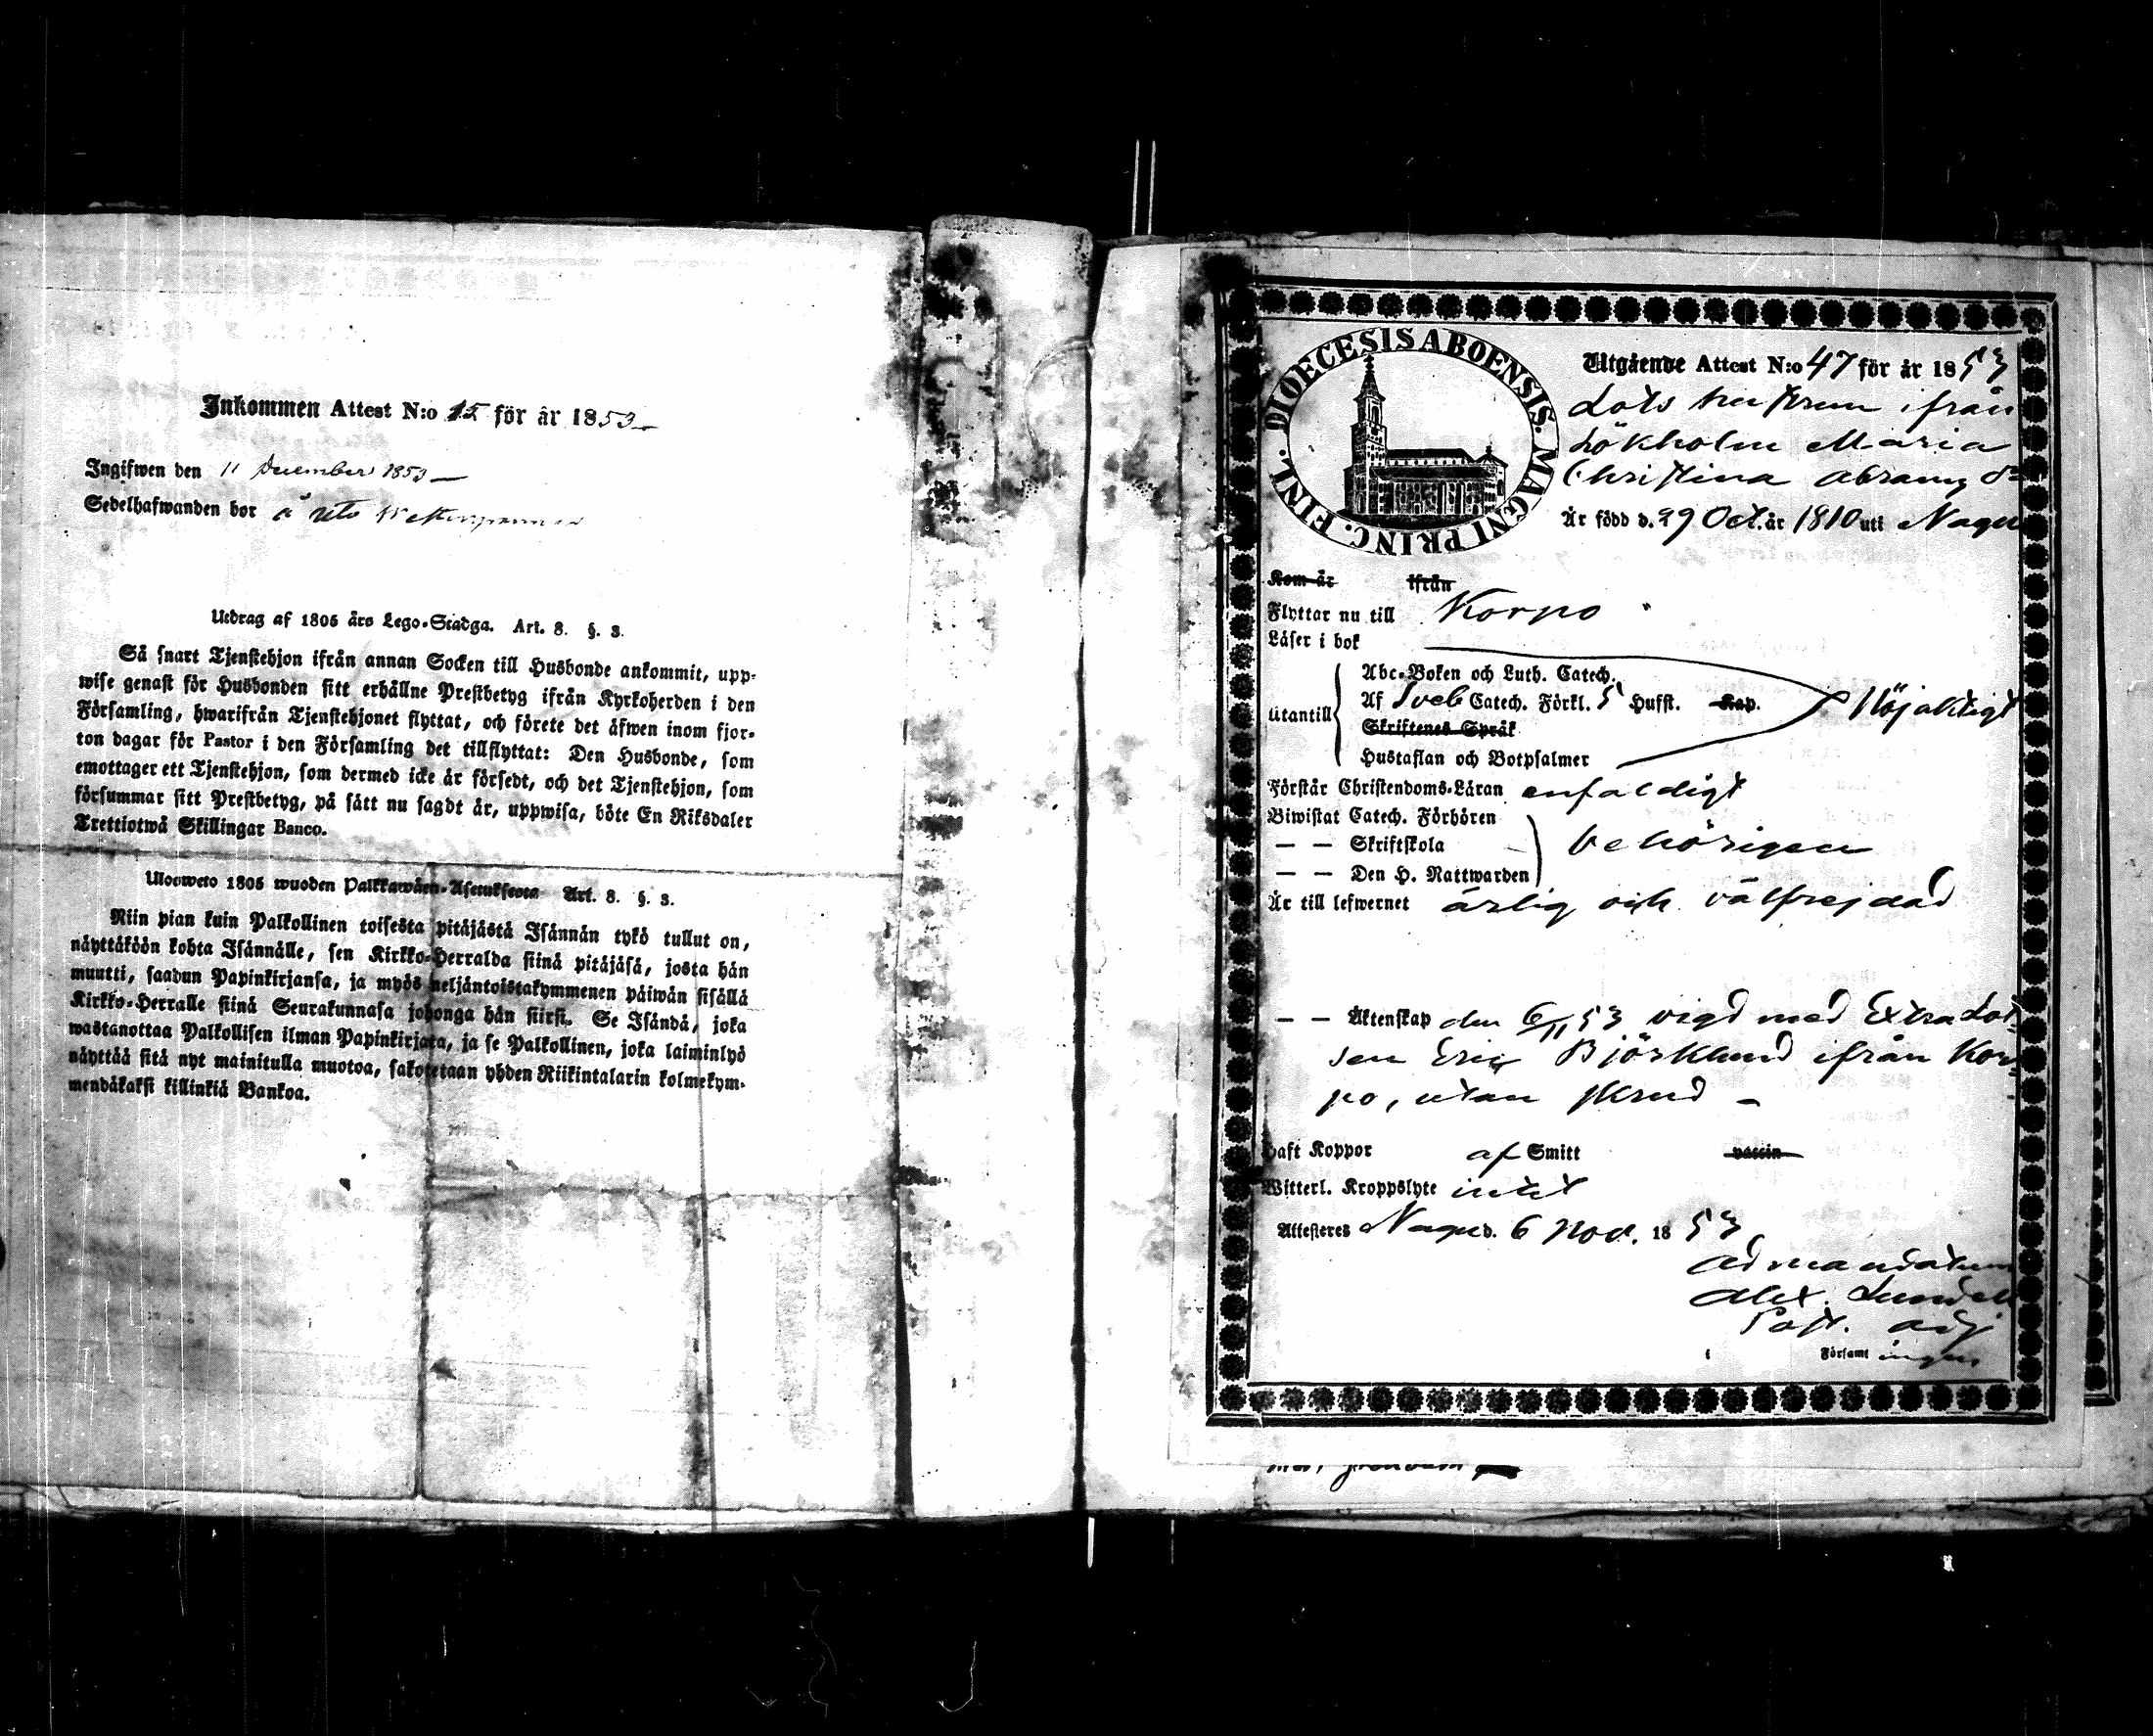 Inkommen Attest N:o 15 för år 1853
Ingifwen den 11 December 1853
Sedelhafwanden bor å Utö
Utdrag af 1805 års Lego-Stadga. Art. 8. §. 3.
Så snart Tjenstehjon ifrån annan Socken till Husbonde ankommit, upp-
wise genast för Husbonden sitt erhållne Prestbetyg ifrån Kyrkoherden i den
Församling, hwarifrån Tjenstehjonet flyttat, och förete det äfwen inom fjor-
ton dagar för Pastor i den Församling det tillflyttat: Den Husbonde, som
emottager ett Tjenstehjon, som dermed icke är försedt, och det Tjenstehjon, som
försummar sitt Prestbetyg, på sätt nu sagdt är, uppwisa, böte En Riksdaler
Trettiotwå Skillingar Banco.
Ulosweto 1805 wuoden Palkkawäen-Asetuksesta Art. 8. §. 3.
Niin pian kuin Palkollinen toisesta pitäjästä Isännän tykö tullut on,
näyttäköön kohta Isännälle, sen Kirkko-Herralda siinä pitäjäsä, josta hän
muutti, saadun Papinkirjansa, ja myös neljäntoistakymmenen päiwän sisällä
Kirkko-Herralle siinä Seurakunnasa johonga hän siirsi. Se Isändä, joka
wastanottaa Palkollisen ilman Papinkirjata, ja se Palkollinen, joka laiminlyö
näyttää sitä nyt mainitulla muotoa, sakotetaan yhden Riikintalarin kolmekym-
mendäkaksi killinkiä Bankoa.
DIOECESIS ABOENSIS. MAGNI PRINC. FINL.
Utgående Attest N:o 47 för år 1853
Lots hustrun ifrån
Lökholm Maria
Christina Abrams dr
Är född d. 29 Oct. år 1810 uti Nagu
Kom år ifrån
Flyttar nu till Korpo
Läser i bok
Abc-Boken och Luth. Catech.
utantill Af Sveb Catech. Förkl. 5 Hufst. Kap. Nöjaktigt
Skriftenes Språk
Hustaflan och Botpsalmer
Förstår Christendoms-Läran enfaldigt
Biwistat Catech. Förhören
— — Skriftskola behörigen
— — Den H. Nattwarden
Är till lefwernet ärlig och välfrejdad
— — Äktenskap den 6/11 53 vigd med Extra Lot-
sen Eric Björklund ifrån Kor-
po, utan skrud
Haft Koppor af Smitt vaccin
Witterl. Kroppslyte intet
Attesteres Nagu d. 6 Nov. 1853
ad mandatum
Alex. Lundell
Past. adj
i Församl ingen